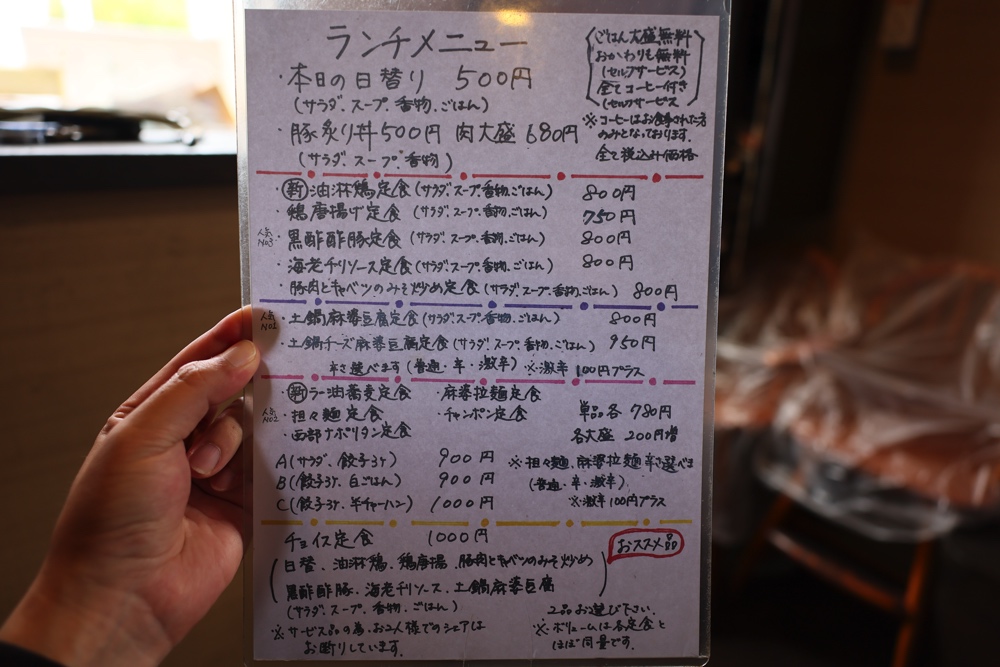 ランチメニュー
ごはん大盛無料
おかわりも無料
(セルフサービス)
全てコーヒー付き
(セルフサービス
※コーヒーはお食事された方
のみとなっております。
全て税込み価格
・本日の日替り 500円
(サラダ、スープ、香物、ごはん)
・豚炙り丼500円 肉大盛680円
(サラダ、スープ、香物)
・新油淋鶏定食(サラダ、スープ、香物、ごはん) 800円
・鶏唐揚げ定食(サラダ、スープ、香物、ごはん) 750円
人気No3 ・黒酢酢豚定食(サラダ、スープ、香物、ごはん) 800円
・海老チリソース定食(サラダ、スープ、香物、ごはん) 800円
・豚肉とキャベツのみそ炒め定食(サラダ、スープ、香物、ごはん) 800円
人気No1 ・土鍋麻婆豆腐定食(サラダ、スープ、香物、ごはん) 800円
・土鍋チーズ麻婆豆腐定食(サラダ、スープ、香物、ごはん) 950円
辛さ選べます(普通・辛・激辛) ※激辛100円プラス
・新ラー油蕎麦定食 ・麻婆拉麺定食
人気No2 ・担々麺定食 ・チャンポン定食 単品各780円
・西部ナポリタン定食 各大盛200円増
A(サラダ、餃子3ケ) 900円
B(餃子3ケ、白ごはん) 900円
C(餃子3ケ、半チャーハン) 1000円
※担々麺、麻婆拉麺辛さ選べます
(普通・辛・激辛)
※激辛100円プラス
チョイス定食 1000円 おススメ品
(日替、油淋鶏、鶏唐揚、豚肉とキャベツのみそ炒め
黒酢酢豚、海老チリソース、土鍋麻婆豆腐)
(サラダ、スープ、香物、ごはん)
※サービス品の為、お2人様でのシェアは
お断りしています。
2品お選び下さい。
※ボリュームは各定食と
ほぼ同量です。